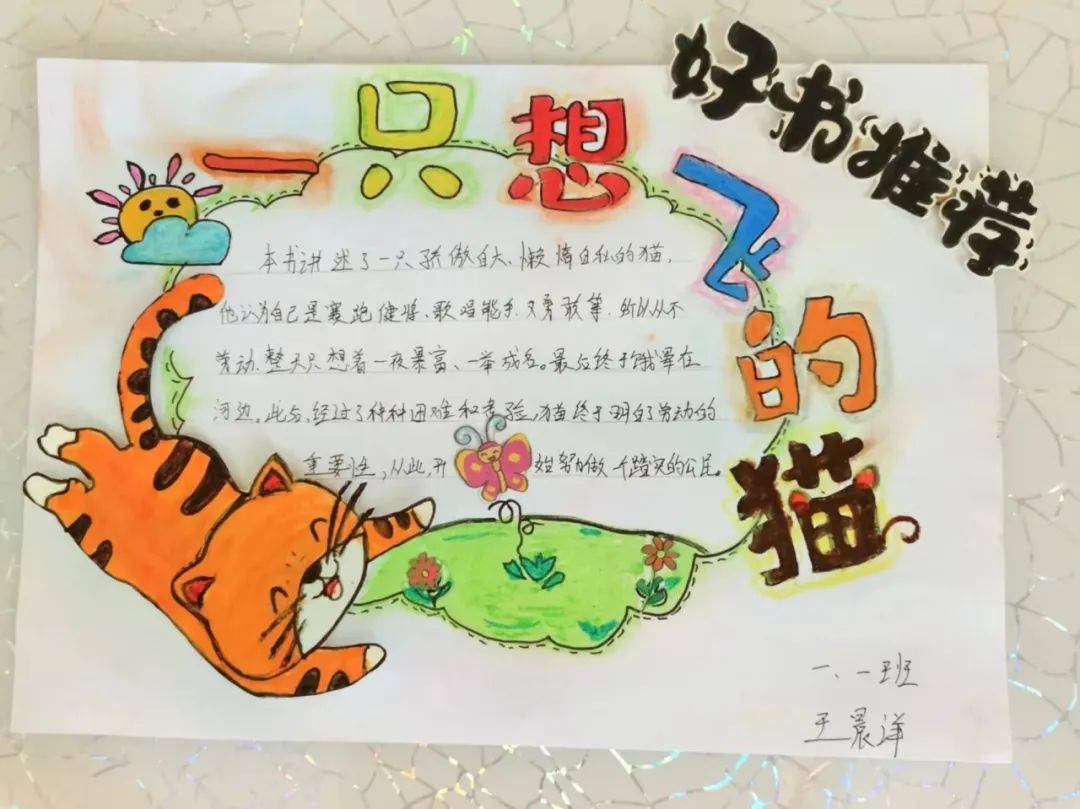 好书推荐
一只想飞的猫
本书讲述了一只骄傲自大、懒惰自私的猫，
他认为自己是赛跑健将、歌唱能手、又勇敢等，所以从不
劳动，整天只想着一夜暴富、一举成名。最后终于饿晕在
河边。此后，经过了种种困难和考验，猫终于明白了劳动的
重要性，从此，开 始努力做一个踏实的公民。
一、一班
王晨洋